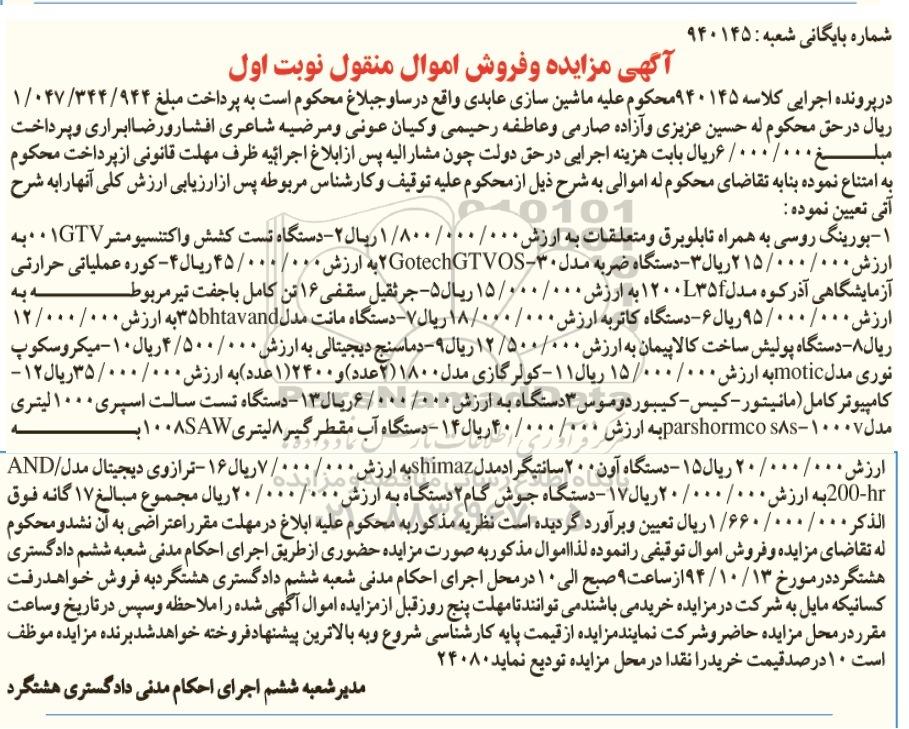 شماره بایگانی شعبه : ۹۴۰۱۴۵
آگهی مزایده وفروش اموال منقول نوبت اول
درپرونده اجرایی کلاسه ۹۴۰۱۴۵محکوم علیه ماشین سازی عابدی واقع درساوجبلاغ محکوم است به پرداخت مبلغ ۱/۰۴۷/۳۴۴/۹۴۴
ریال درحق محکوم له حسین عزیزی وآزاده صارمی وعاطفه رحیمی وکیان عونی ومرضیه شاعری افشارورضاابراری وپرداخت
مبلــــــغ۶/۰۰۰/۰۰۰ریال بابت هزینه اجرایی درحق دولت چون مشارالیه پس ازابلاغ اجرائیه ظرف مهلت قانونی ازپرداخت محکوم
به امتناع نموده بنابه تقاضای محکوم له اموالی به شرح ذیل ازمحکوم علیه توقیف وکارشناس مربوطه پس ازارزیابی ارزش کلی آنهارابه شرح
آتی تعیین نموده :
۱-بورینگ روسی به همراه تابلوبرق ومتعلقات به ارزش۱/۸۰۰/۰۰۰/۰۰۰ریال۲-دستگاه تست کشش واکتنسیومتر۰۰۱GTVبه
ارزش۲۱۵/۰۰۰/۰۰۰ریال۳-دستگاه ضربه مدل۳۰-۲GotechGTVOSبه ارزش۴۵/۰۰۰/۰۰۰ریال۴-کوره عملیاتی حرارتی
آزمایشگاهی آذرکوه مدل۱۲۰۰L۳۵fبه ارزش۱۵/۰۰۰/۰۰۰ریال۵-جرثقیل سقفی۱۶تن کامل باجفت تیرمربوطــــــه به
ارزش۹۵/۰۰۰/۰۰۰ریال۶-دستگاه کاتربه ارزش۱۸/۰۰۰/۰۰۰ریال۷-دستگاه مانت مدل۳۵bhtavandبه ارزش۱۲/۰۰۰/۰۰۰
ریال۸-دستگاه پولیش ساخت کالاپیمان به ارزش۱۲/۵۰۰/۰۰۰ریال۹-دماسنج دیجیتالی به ارزش۴/۵۰۰/۰۰۰ریال۱۰-میکروسکوپ
نوری مدلmoticبه ارزش۱۵/۰۰۰/۰۰۰ ریال۱۱-کولرگازی مدل۱۸۰۰(۲عدد)و۲۴۰۰(۱عدد)به ارزش۳۵/۰۰۰/۰۰۰ریال۱۲-
کامپیوترکامل(مانیتور-کیس-کیبوردوموس۳دستگاه به ارزش۶/۰۰۰/۰۰۰ریال۱۳-دستگاه تست سالت اسپری۱۰۰۰لیتری
مدلparshormco s۸s-۱۰۰۰vبه ارزش۴۰/۰۰۰/۰۰۰ریال۱۴-دستگاه آب مقطرگیر۸لیتری۱۰۰۸SAWبــــــه
ارزش۲۰/۰۰۰/۰۰۰ ریال۱۵-دستگاه آون۲۰۰سانتیگرادمدلshimazبه ارزش۷/۰۰۰/۰۰۰ریال۱۶-ترازوی دیجیتال مدل/AND
200-hrبه ارزش۲۰/۰۰۰/۰۰۰ریال۱۷-دستگاه جوش گام۲دستگاه به ارزش۲۰/۰۰۰/۰۰۰ریال مجموع مبالغ۱۷گانه فوق
الذکر۱/۶۶۰/۰۰۰/۰۰۰ریال تعیین وبرآورد گردیده است نظریه مذکوربه محکوم علیه ابلاغ درمهلت مقرراعتراضی به آن نشدومحکوم
له تقاضای مزایده وفروش اموال توقیفی رانموده لذااموال مذکوربه صورت مزایده حضوری ازطریق اجرای احکام مدنی شعبه ششم دادگستری
هشتگرددرمورخ ۹۴/۱۰/۱۳ازساعت۹صبح الی۱۰درمحل اجرای احکام مدنی شعبه ششم دادگستری هشتگردبه فروش خواهدرفت
کسانیکه مایل به شرکت درمزایده خریدمی باشندمی توانندتامهلت پنج روزقبل ازمزایده اموال آگهی شده را ملاحظه وسپس درتاریخ وساعت
مقرردرمحل مزایده حاضروشرکت نمایندمزایده ازقیمت پایه کارشناسی شروع وبه بالاترین پیشنهادفروخته خواهدشدبرنده مزایده موظف
است ۱۰درصدقیمت خریدرا نقدا درمحل مزایده تودیع نماید۲۴۰۸۰
مدیرشعبه ششم اجرای احکام مدنی دادگستری هشتگرد